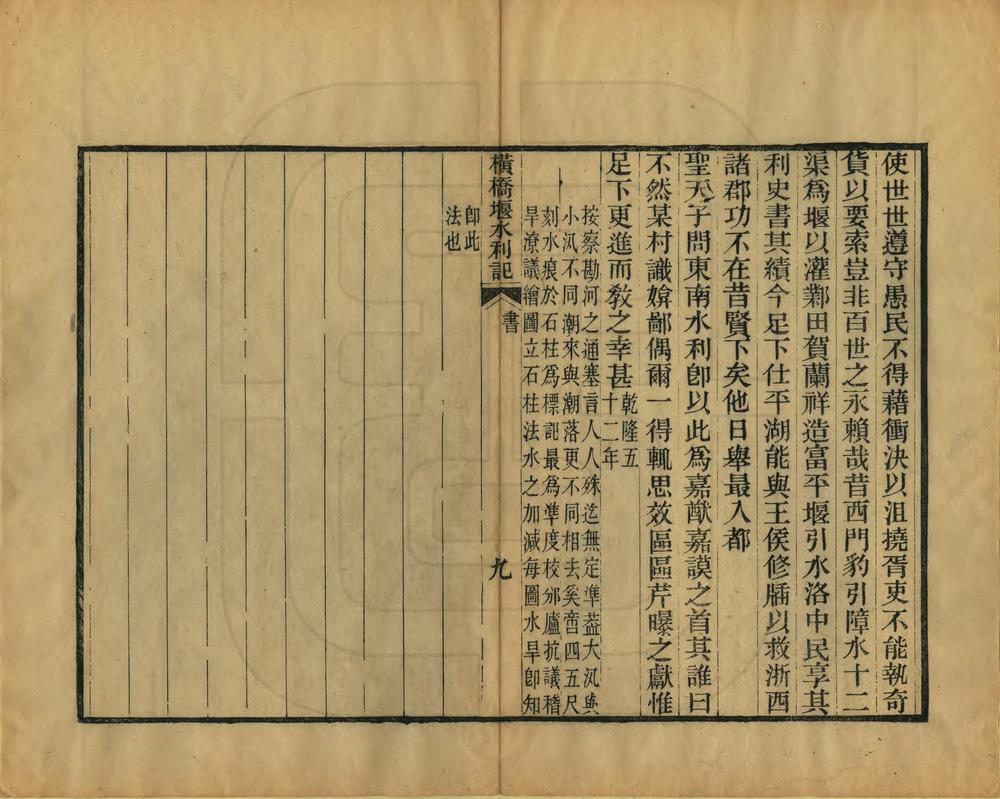 使世世遵守愚民不得藉衝決以沮撓胥吏不能執奇
貨以要索豈非百世之永賴哉昔西門豹引障水十二
渠爲堰以灌鄴田賀蘭祥造富平堰引水洛中民享其
利史書其績今足下仕平湖能與王侯修牐以救浙西
諸郡功不在昔賢下矣他日舉最入都
聖天子問東南水利卽以此爲嘉猷嘉謨之首其誰曰
不然某村識媕鄙偶爾一得輒思效區區芹曝之獻惟
足下更進而敎之幸甚乾隆五
十二年
按察勘河之通塞言人人殊迄無定準葢大汛與
小汛不同潮來與潮落更不同相去奚啻四五尺
刻水痕於石柱爲標記最爲準度校邠廬抗議稽
旱潦議繪圖立石柱法水之加減每圖水旱卽知
橫橋堰水利記
書
九
卽此
法也